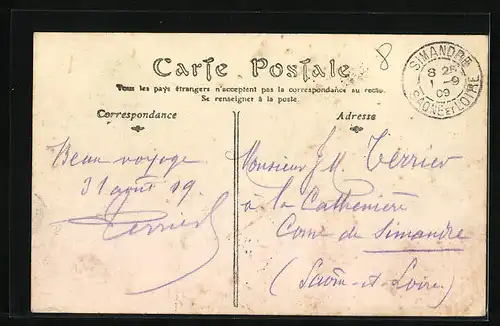 8
Carte Postale
Tous les pays étrangers n'acceptent pas la correspondance au recto.
Se renseigner à la poste.
SIMANDRE
8 25
1 -9
09
SAONE ET LOIRE
Correspondance
Adresse
Beau voyage
31 août 09.
Monsieur J M. Terrier
à la
Come de Simandre
(Saône-et-Loire)